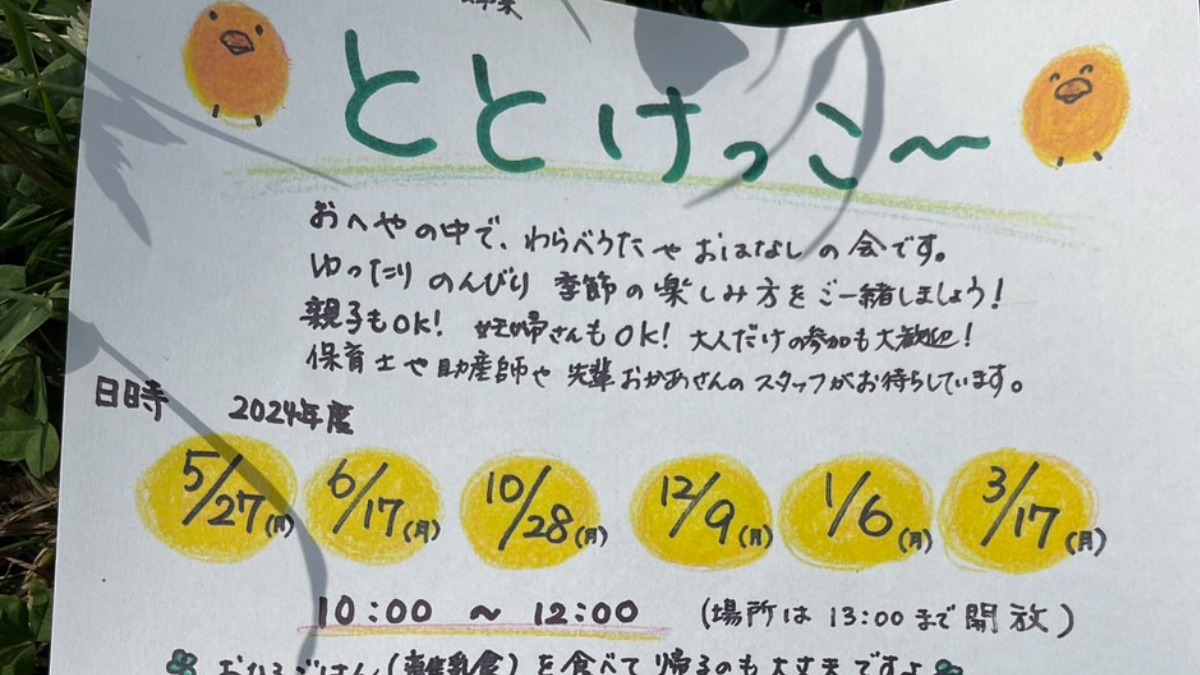 ととけっこ〜
おへやの中で、わらべうたやおはなしの会です。
ゆったりのんびり 季節の楽しみ方をご一緒しましょう!
親子もOK! 妊婦さんもOK! 大人だけの参加も大歓迎!
保育士や助産師や先輩おかあさんのスタッフがお待ちしています。
日時 2024年度
5/27(月) 6/17(月) 10/28(月) 12/9(月) 1/6(月) 3/17(月)
10:00 〜 12:00 (場所は 13:00まで開放)
おひるごはん(離乳食)を食べて帰るのも大丈夫ですよ